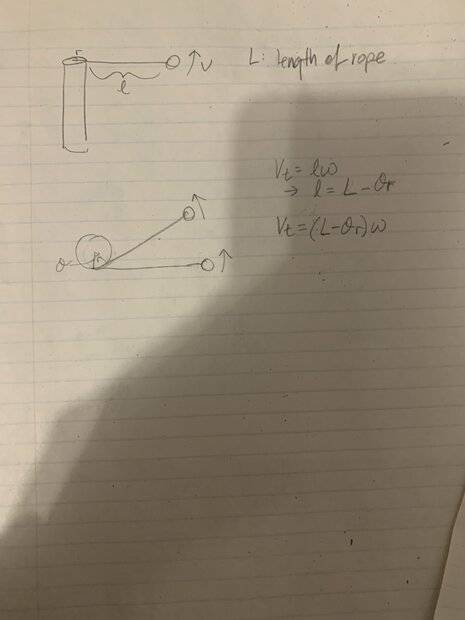 r
↑v
L: length of rope
l
V_t = lω
→ l = L - θr
V_t = (L-θr)ω
θ